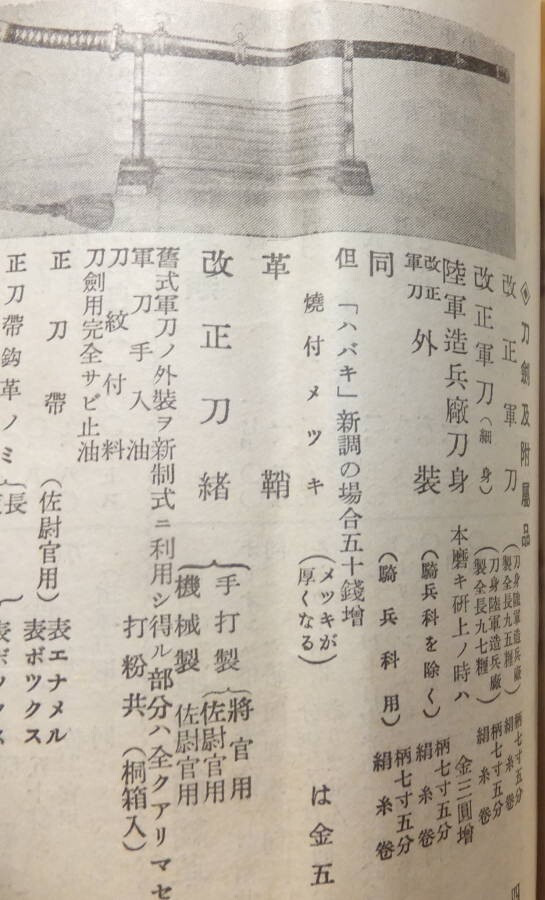 刀劍及附屬品
改正軍刀 (刀身陸軍造兵廠製全長九五糎) 柄七寸五分 絹糸卷
改正軍刀(細身) (刀身陸軍造兵廠製全長九七糎) 柄七寸五分 絹糸卷
陸軍造兵廠刀身 本磨キ研上ノ時ハ 金三圓增
改正軍刀 外裝 (騎兵科を除く) 柄七寸五分 絹糸卷
同 (騎兵科用) 柄七寸五分 絹糸卷
但 「ハバキ」新調の場合五十錢增
燒付メツキ (メツキが厚くなる) は金五
革鞘
改正刀緖 手打製 將官用 佐尉官用
機械製 佐尉官用
舊式軍刀ノ外裝ヲ新制式ニ利用シ得ル部分ハ全クアリマセ
軍刀手入油 打粉共 (桐箱入)
刀紋付料
刀劍用完全サビ止油
正刀帶 (佐尉官用) 表エナメル 表ボツクス
正刀帶鈎革ノミ 長
四